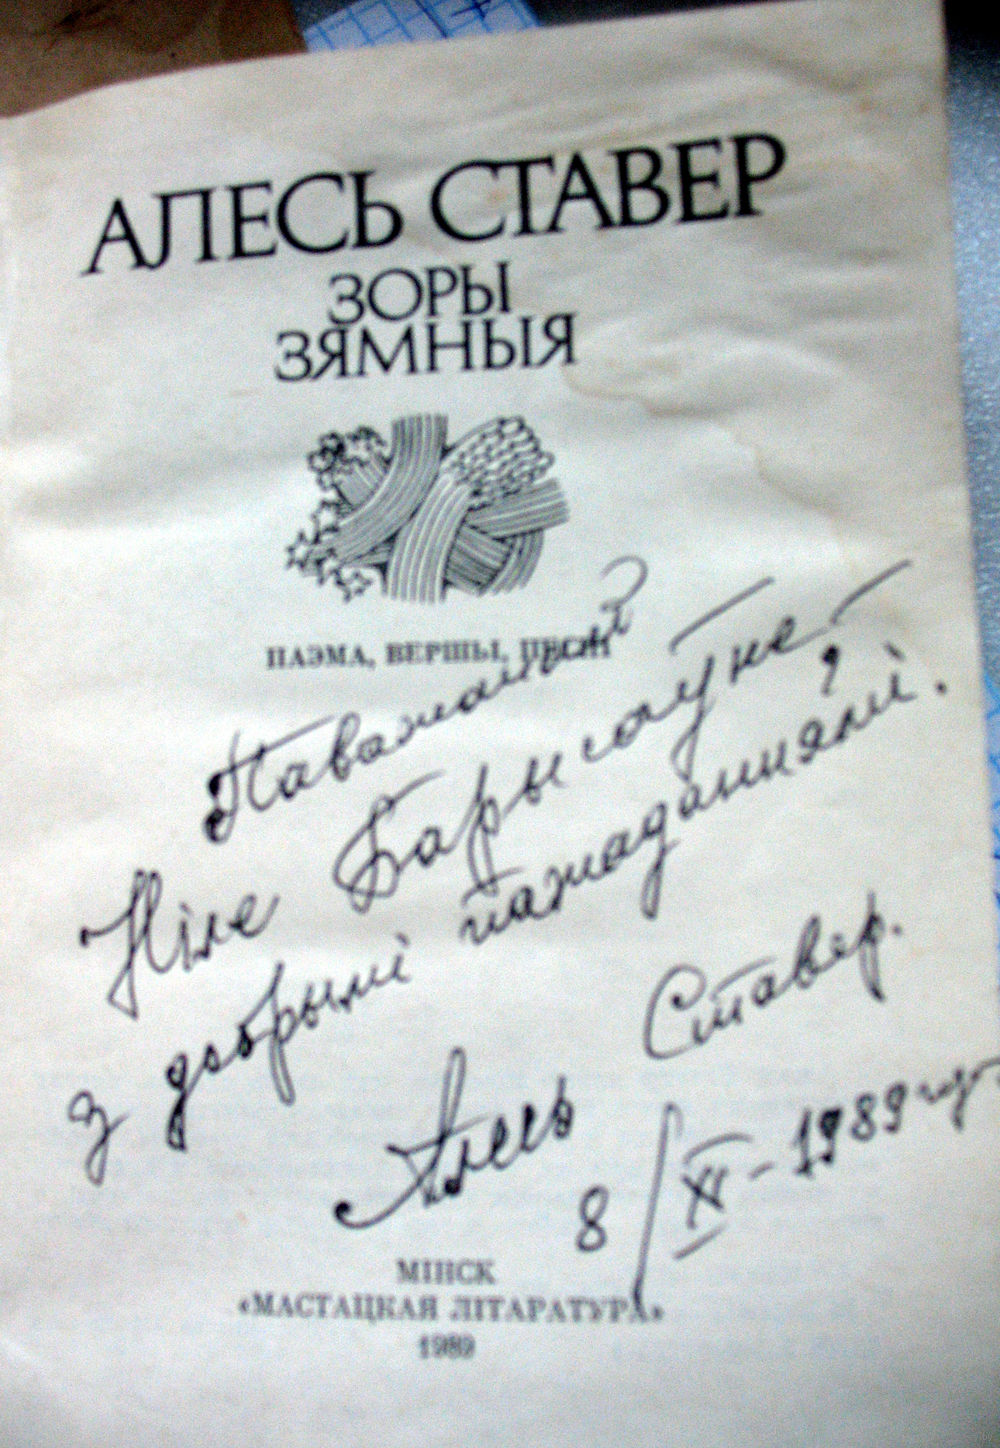 АЛЕСЬ СТАВЕР
ЗОРЫ
ЗЯМНЫЯ
ПАЭМА, ВЕРШЫ, ПЕСНІ
Паважанай
Ніле Барысаўне
з добрымі пажаданнямі.
Алесь Ставер.
8/XI-1989 г.
МІНСК
«МАСТАЦКАЯ ЛІТАРАТУРА»
1989